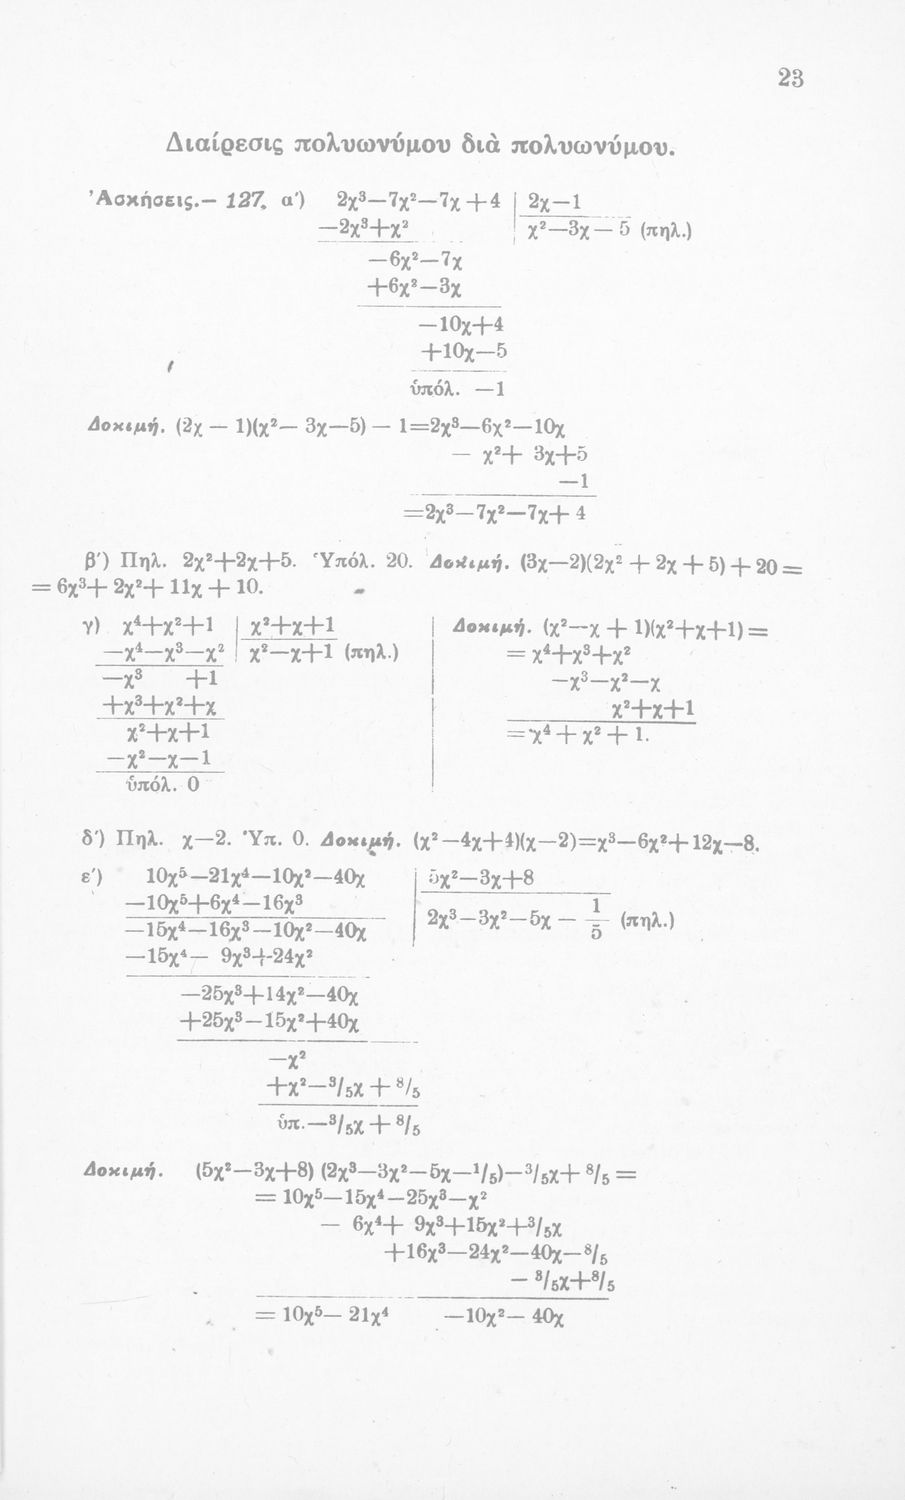 23
Διαίρεσις πολυωνύμου διὰ πολυωνύμου.
Ἀσκήσεις.— 127. α') 2χ³—7χ²—7χ+4 | 2χ—1
—2χ³+χ² | χ²—3χ—5 (πηλ.)
—6χ²—7χ
+6χ²—3χ
—10χ+4
+10χ—5
ὑπόλ. —1
Δοκιμή. (2χ — 1)(χ²— 3χ—5) — 1=2χ³—6χ²—10χ
— χ²+ 3χ+5
—1
=2χ³—7χ²—7χ+ 4
β') Πηλ. 2χ²+2χ+5. Ὑπόλ. 20. Δοκιμή. (3χ—2)(2χ² + 2χ + 5) + 20 =
= 6χ³+ 2χ²+ 11χ + 10.
γ) χ⁴+χ²+1 | χ²+χ+1
—χ⁴—χ³—χ² | χ²—χ+1 (πηλ.)
—χ³ +1
+χ³+χ²+χ
χ²+χ+1
—χ²—χ—1
ὑπόλ. 0
Δοκιμή. (χ²—χ + 1)(χ²+χ+1) =
= χ⁴+χ³+χ²
—χ³—χ²—χ
χ²+χ+1
= χ⁴ + χ² + 1.
δ') Πηλ. χ—2. Ὑπ. 0. Δοκιμή. (χ²—4χ+4)(χ—2)=χ³—6χ²+12χ—8.
ε') 10χ⁵—21χ⁴—10χ²—40χ | 5χ²—3χ+8
—10χ⁵+6χ⁴—16χ³ | 2χ³—3χ²—5χ — 1/5 (πηλ.)
—15χ⁴—16χ³—10χ²—40χ
—15χ⁴— 9χ³+24χ²
—25χ³+14χ²—40χ
+25χ³—15χ²+40χ
—χ²
+χ²—³/₅χ + ⁸/₅
ὑπ.—³/₅χ + ⁸/₅
Δοκιμή. (5χ²—3χ+8) (2χ³—3χ²—5χ—¹/₅)—³/₅χ+ ⁸/₅ =
= 10χ⁵—15χ⁴—25χ³—χ²
— 6χ⁴+ 9χ³+15χ²+³/₅χ
+16χ³—24χ²—40χ—⁸/₅
— ³/₅χ+⁸/₅
= 10χ⁵— 21χ⁴ —10χ²— 40χ